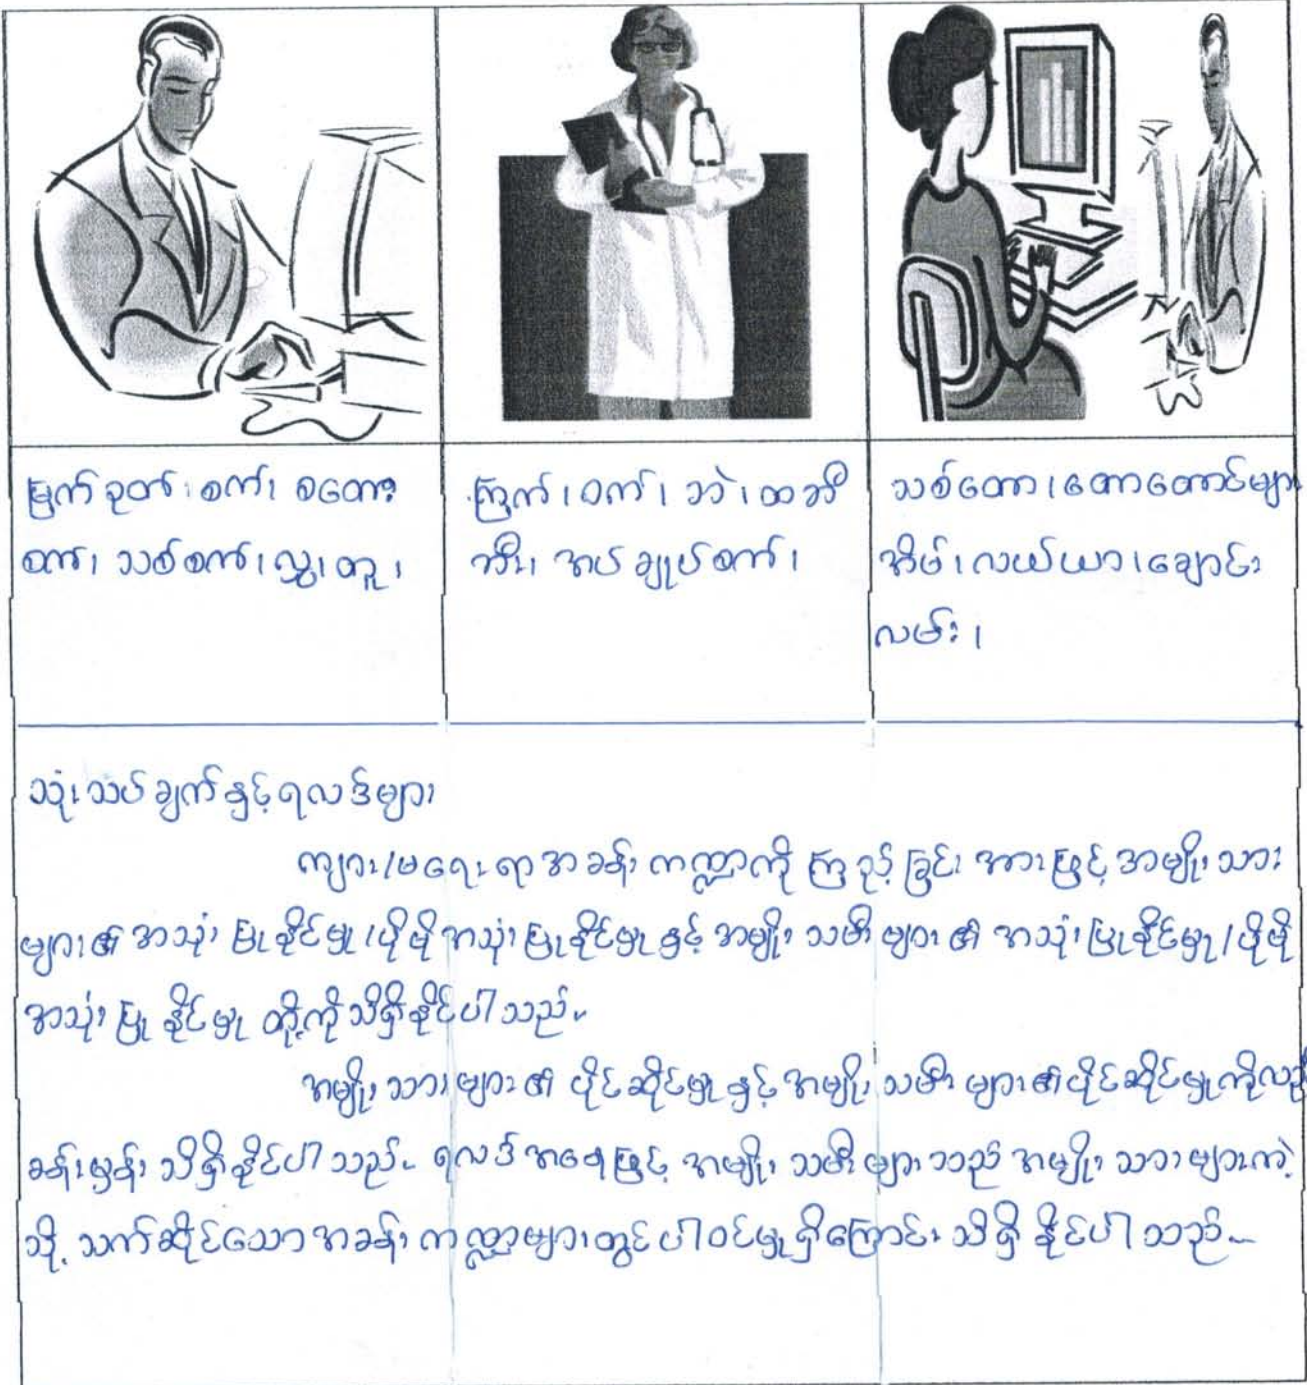 မြက်ခုတ်စက်၊ စတော
စက်၊ သစ်စက်၊ လွှ၊ တူ၊
ကြက်၊ ဝက်၊ ဘဲ၊ ထဘီ
အီး၊ အပ်ချုပ်စက်၊
သစ်တော၊ တောတောင်များ
အိမ်၊ လယ်ယာ၊ ချောင်း
လမ်း၊
သုံးသပ်ချက်နှင့်ရလဒ်များ
ကျား/မရေးရာအခန်းကဏ္ဍကို ကြည့်ခြင်းအားဖြင့် အမျိုးသား
များ၏ အသုံးပြုနိုင်မှု/ပိုမိုအသုံးပြုနိုင်မှုနှင့် အမျိုးသမီးများ၏ အသုံးပြုနိုင်မှု/ပိုမို
အသုံးပြုနိုင်မှုတို့ကိုသိရှိနိုင်ပါသည်။
အမျိုးသားများ၏ ပိုင်ဆိုင်မှုနှင့် အမျိုးသမီးများ၏ပိုင်ဆိုင်မှုကိုလည်း
ခန့်မှန်းသိရှိနိုင်ပါသည်။ ရလဒ်အနေဖြင့် အမျိုးသမီးများသည် အမျိုးသားများကဲ့
သို့ သက်ဆိုင်သောအခန်းကဏ္ဍများတွင်ပါဝင်မှုရှိကြောင်းသိရှိနိုင်ပါသည်။